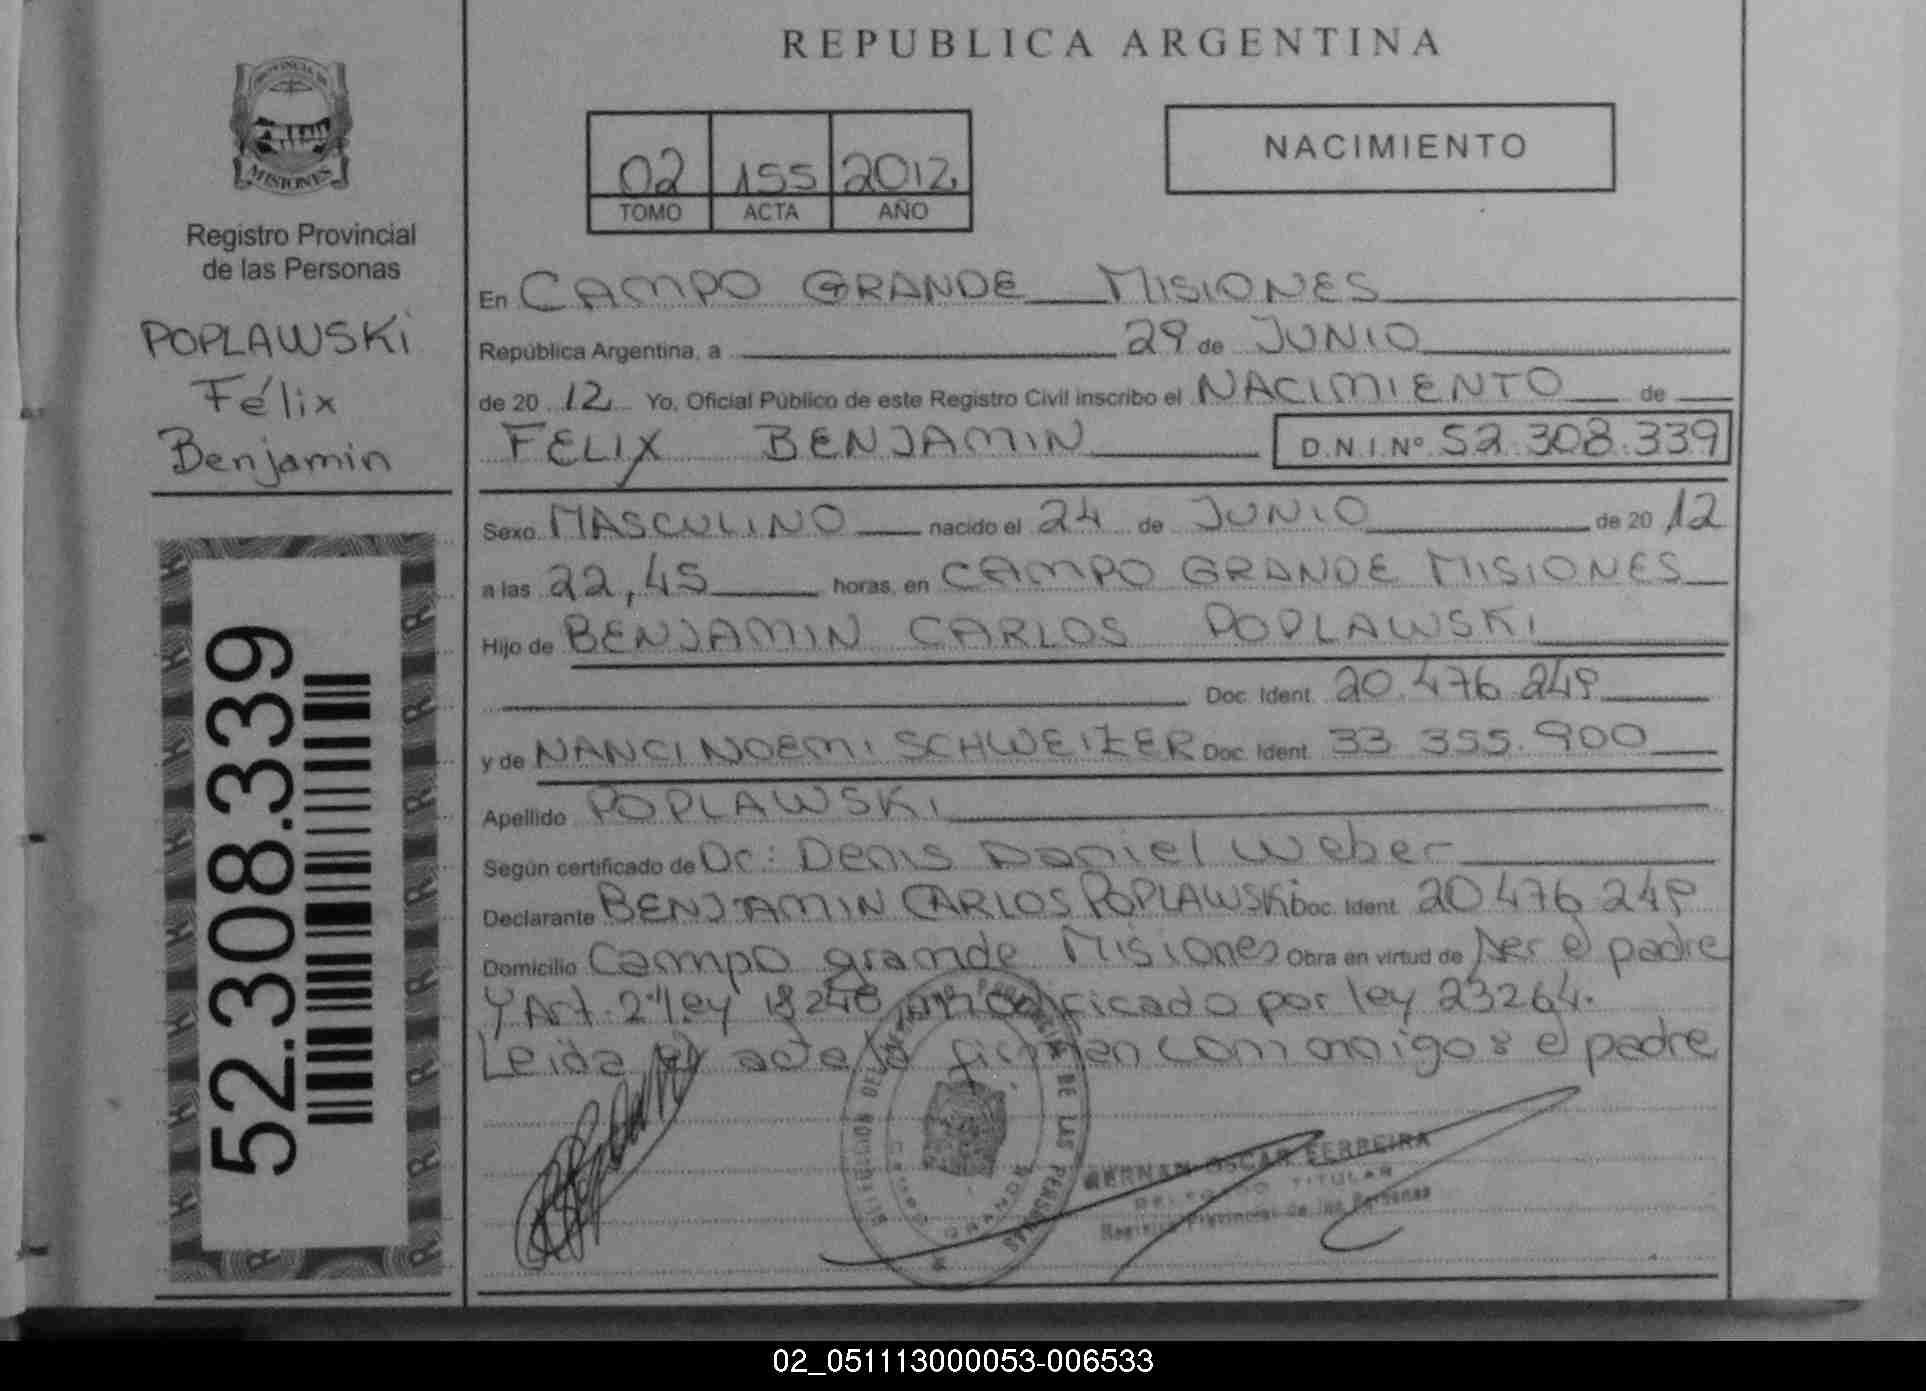 REPUBLICA ARGENTINA
PROVINCIA DE
MISIONES
Registro Provincial
de las Personas
POPLAWSKi
Félix
Benjamin
52.308.339
02 155 2012
TOMO ACTA AÑO
NACIMIENTO
En CAMPO GRANDE MISIONES
República Argentina, a 29 de JUNIO
de 20 12 Yo, Oficial Público de este Registro Civil inscribo el NACIMIENTO de
FELIX BENJAMIN D.N.I.Nº 52.308.339
Sexo MASCULINO nacido el 24 de JUNIO de 20 12
a las 22,45 horas, en CAMPO GRANDE MISIONES
Hijo de BENJAMIN CARLOS POPLAWSKI
Doc. Ident. 20.476.249
y de NANCI NOEMI SCHWEIZER Doc. Ident. 33 355.900
Apellido POPLAWSKI
Según certificado de Dr: Denis Daniel Weber
Declarante BENJAMIN CARLOS POPLAWSKi Doc. Ident. 20 476 249
Domicilio Campo grande Misiones Obra en virtud de ser el padre
Y Art. 2º ley 18248 modificado por ley 23264.
Leida el acta la firman conmigo: el padre
DIRECCION DEL REGISTRO PROVINCIAL DE LAS PERSONAS
HERNAN OSCAR FERREIRA
DELEGADO TITULAR
Registro Provincial de las Personas
02_051113000053-006533